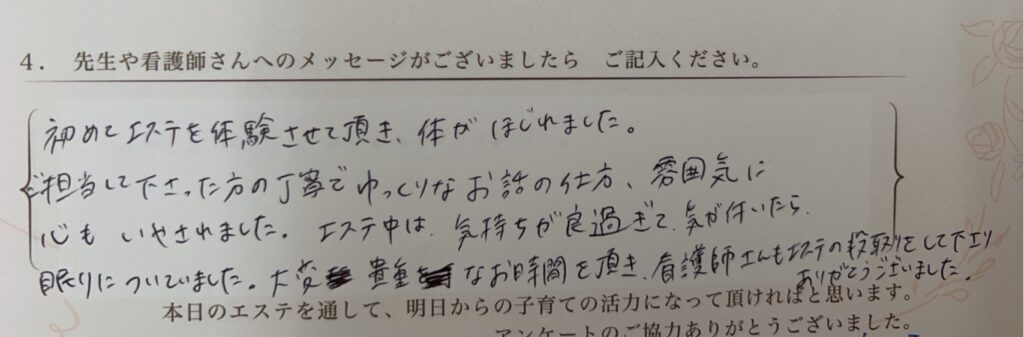 4. 先生や看護師さんへのメッセージがございましたら ご記入ください。
初めてエステを体験させて頂き、体がほじれました。
ご担当して下さった方の丁寧でゆっくりなお話の仕方、雰囲気に
心もいやされました。エステ中は、気持ちが良過ぎて、気が付いたら、
眠りについていました。大変貴重なお時間を頂き、看護師さんもエステの段取りをして下さり
ありがとうございました。
本日のエステを通して、明日からの子育ての活力になって頂ければと思います。
アンケートのご協力ありがとうございました。